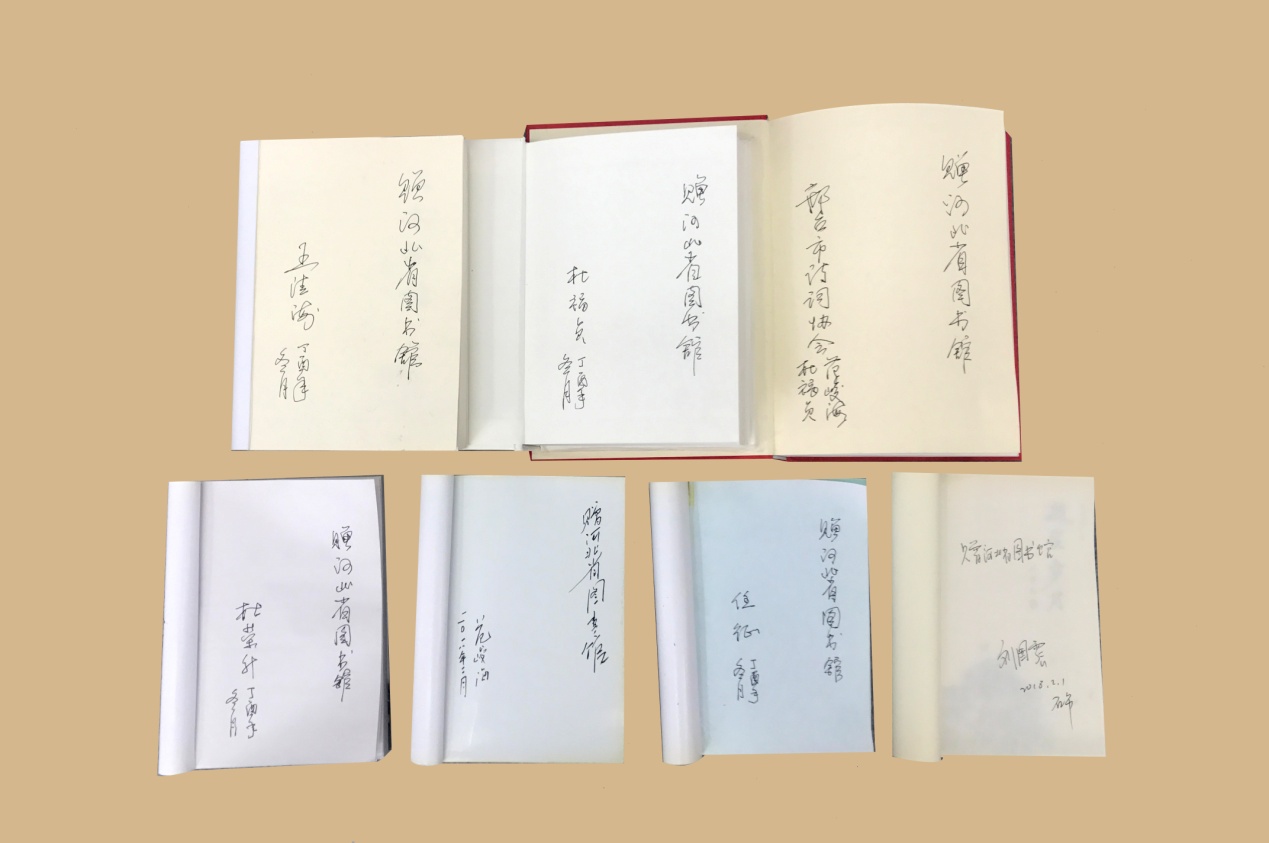 赠河北省图书馆
王佳海
丁酉年
冬月
赠河北省图书馆
杜福贞
丁酉年
冬月
赠河北省图书馆
邢台市诗词协会
范峻海
杜福贞
赠河北省图书馆
杜荣升
丁酉年
冬月
赠河北省图书馆
范峻海
二〇一八年二月
赠河北省图书馆
任征
丁酉年
冬月
赠河北省图书馆
刘国云
2018.2.1